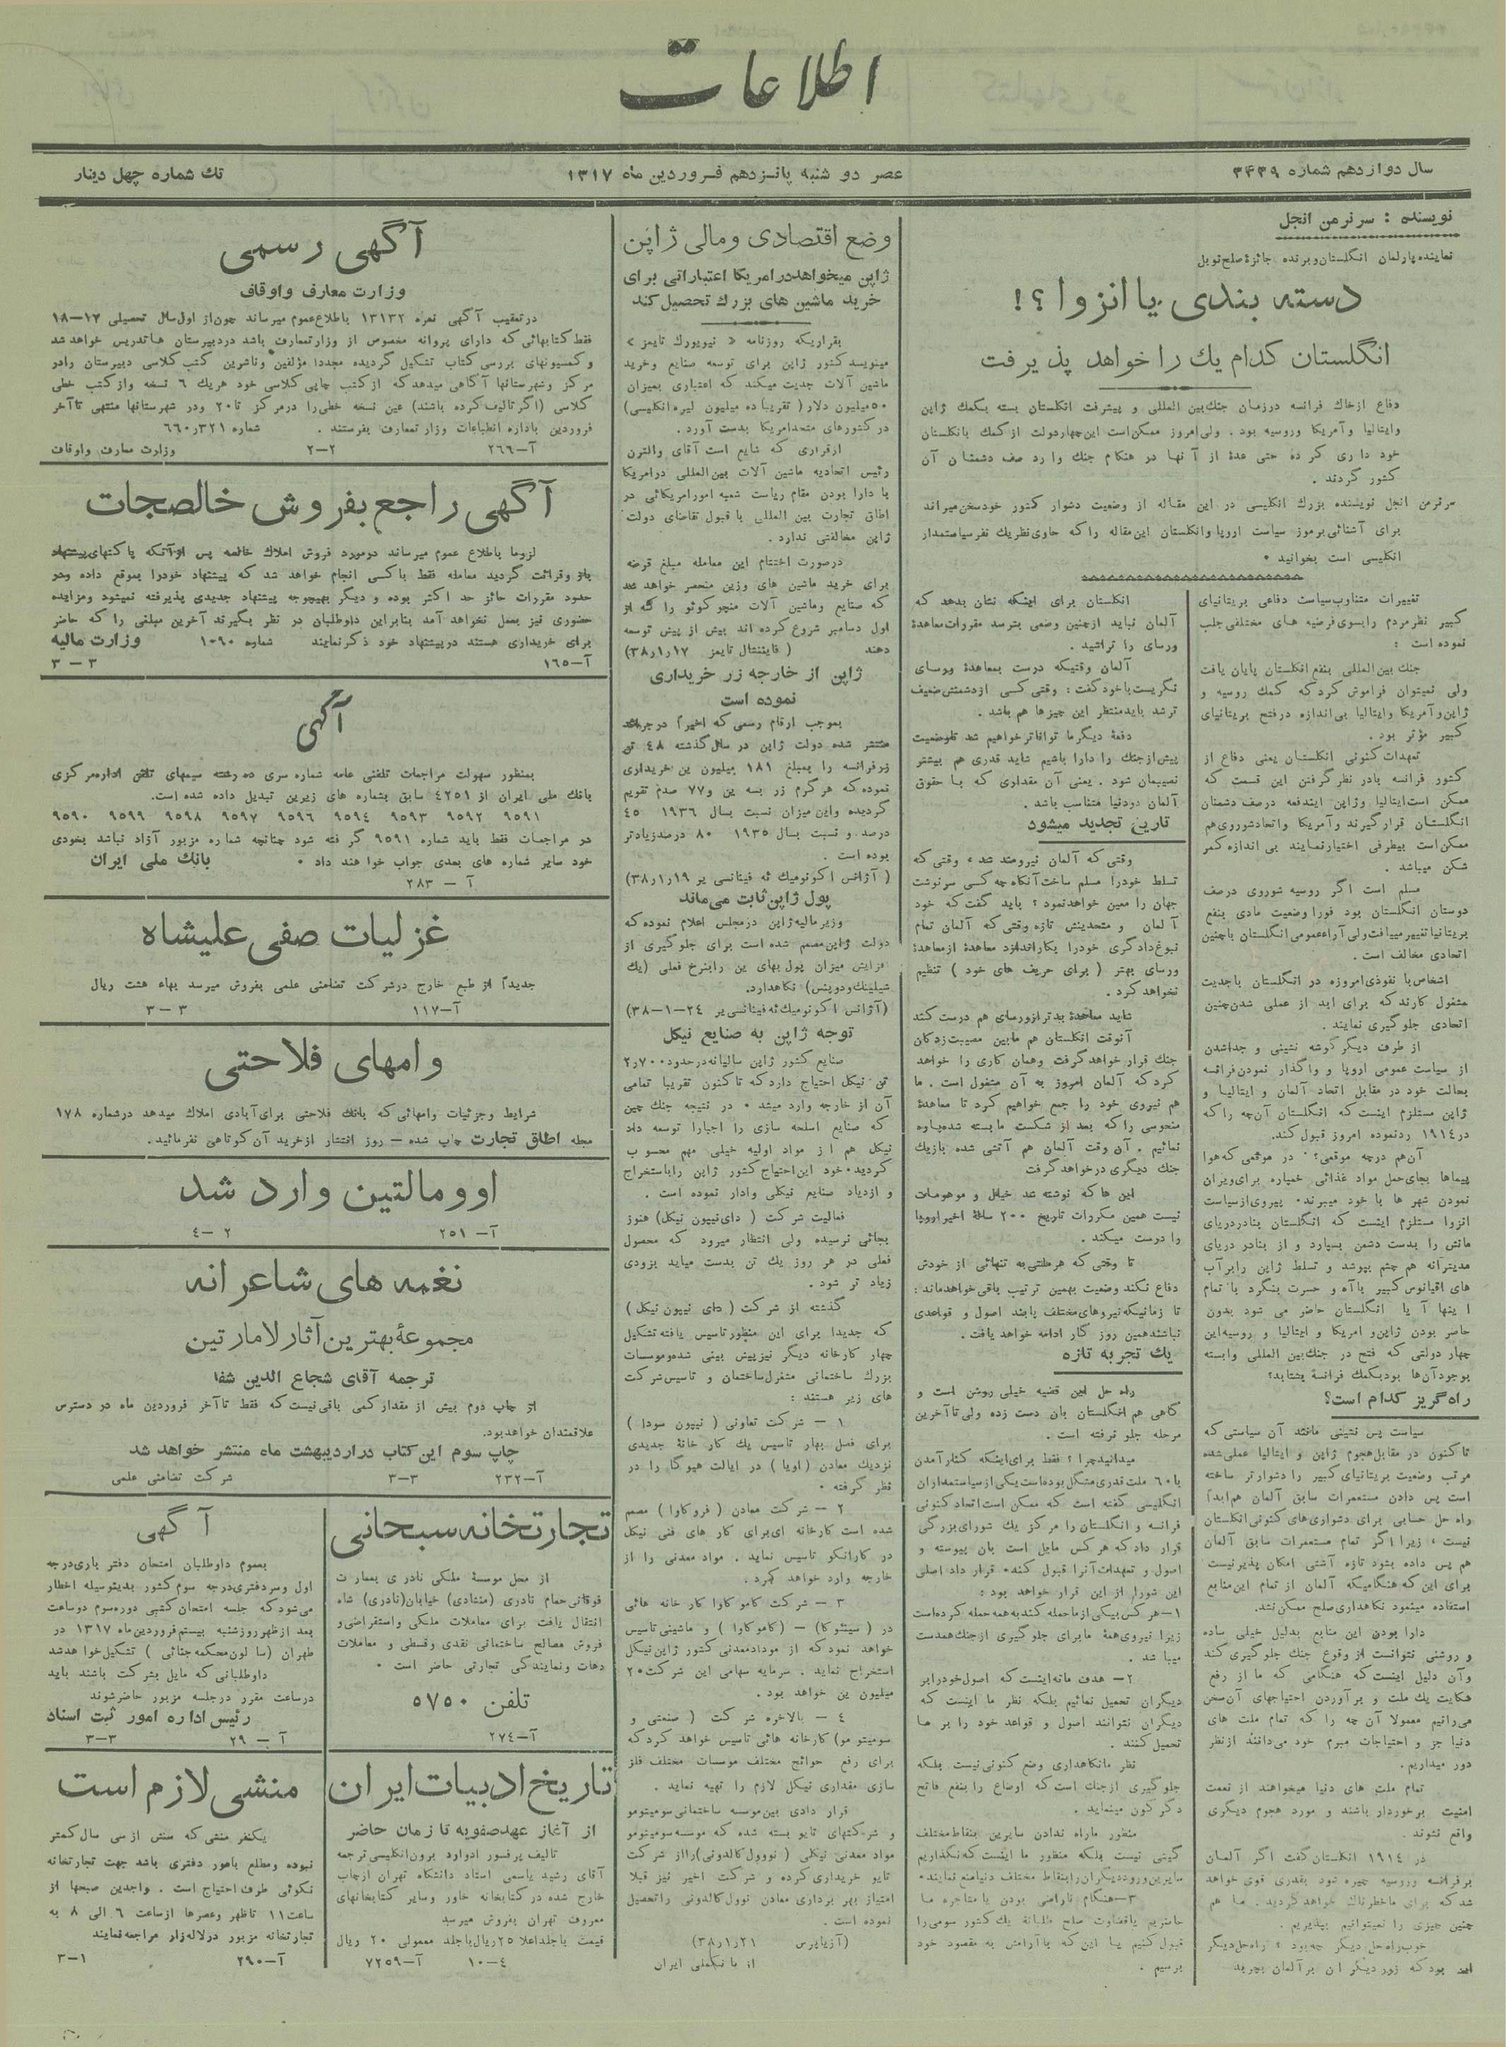 اطلاعات
سال دوازدهم شماره ۳۴۳۹
عصر دو شنبه پانزدهم فروردین ماه ۱۳۱۷
تك شماره چهل دینار
نویسنده : سر نرمن انجل
نماینده پارلمان انگلستان و برنده جائزهٔ صلح نوبل
دسته بندی یا انزوا ؟!
انگلستان كدام یك را خواهد پذیرفت
دفاع ازخاك فرانسه درزمان جنك بین المللی و پیشرفت انگلستان بسته بكمك ژاپن
وایتالیا و آمریكا وروسیه بود . ولی امروز ممكن است این چهاردولت ازكمك بانگلستان
خود داری كرده حتی عدهٔ از آنها در هنكام جنك وارد صف دشمنان آن
كشور گردند .
سرنرمن انجل نویسنده بزرك انكلیسی در این مقاله از وضعیت دشوار كشور خودسخن میراند
برای آشنائی برموز سیاست اروپا وانكلستان این مقاله را كه حاوی نظریك نفرسیاستمدار
انكلیسی است بخوانید •
تغییرات متناوب سیاست دفاعی بریتانیای
كبیر نظرمردم رابسوی فرضیه های مختلفی جلب
نموده است :
جنك بین المللی بنفع انكلستان پایان یافت
ولی نمیتوان فراموش كردكه كمك روسیه و
ژاپن وآمریكا وایتالیا بی اندازه درفتح بریتانیای
كبیر مؤثر بود .
تعهدات كنونی انكلستان یعنی دفاع از
كشور فرانسه بادر نظرگرفتن این قسمت كه
ممكن است ایتالیا وژاپن ایندفعه درصف دشمنان
انكلستان قرارگیرند وآمریكا واتحادشوروی هم
ممكن است بیطرفی اختیارنمایند بی اندازه كمر
شكن میباشد .
مسلم است اگر روسیه شوروی درصف
دوستان انكلستان بود فورا وضعیت مادی بنفع
بریتانیا تغییر مییافت ولی آراءعمومی انكلستان باچنین
اتحادی مخالف است .
اشخاص با نفوذی امروزه در انكلستان باجدیت
مشغول كارند كه برای ابد از عملی شدن چنین
اتحادی جلو گیری نمایند .
از طرف دیگر گوشه نشینی و جداشدن
از سیاست عمومی اروپا و واگذار نمودن فرانسه
بحالت خود در مقابل اتحاد آلمان و ایتالیا و
ژاپن مستلزم اینست كه انگلستان آن چه را كه
در۱۹۱۴ ردنموده امروز قبول كند.
آن هم درچه موقعی؟ در موقعی كه هوا
پیماها بجای حمل مواد غذائی خمپاره برای ویران
نمودن شهر ها با خود میبرند• پیروی از سیاست
انزوا مستلزم اینست كه انگلستان بنادردریای
مانش را بدست دشمن بسپارد و از بنادر دریای
مدیترانه هم چشم بپوشد و تسلط ژاپن رابر آب
های اقیانوس كبیر باآه و حسرت بنگرد با تمام
اینها آیا انگلستان حاضر می شود بدون
حاضر بودن ژاپن و امریكا و ایتالیا و روسیه این
چهار دولتی كه فتح در جنك بین المللی وابسته
بوجود آن ها بود بكمك فرانسه بشتابد؟
راه گریز كدام است؟
سیاست پس نشینی مانند آن سیاستی كه
تا كنون در مقابل هجوم ژاپن و ایتالیا عملی شده
مرتب وضعیت بریتانیای كبیر را دشوارتر ساخته
است پس دادن مستعمرات سابق آلمان هم ابداً
راه حل حسابی برای دشواری های كنونی انگلستان
نیست ، زیرا اگر تمام مستعمرات سابق آلمان
هم پس داده بشود تازه آشتی امكان پذیر نیست
برای این كه هنگامیكه آلمان از تمام این منابع
استفاده مینمود نگاهداری صلح ممكن نشد.
دارا بودن این منابع بدلیل خیلی ساده
و روشنی نتوانست از وقوع جنك جلوگیری كند
وآن دلیل اینست كه هنگامی كه ما از رفع
شكایت یك ملت و برآوردن احتیاجهای آن سخن
می رانیم معمولا آن چه را كه تمام ملت های
دنیا جز و احتیاجات مبرم خود می دانند از نظر
دور میداریم.
تمام ملت های دنیا میخواهند از نعمت
امنیت برخوردار باشند و مورد هجوم دیگری
واقع نشوند .
در ۱۹۱۴ انگلستان گفت اگر آلمان
بر فرانسه وروسیه چیره شود بقدری قوی خواهد
شد كه برای ما خطرناك خواهد گردید . ما هم
چنین چیزی را نمیتوانیم بپذیریم .
خوب راه حل دیگر چه بود ؟ راه حل دیگر
این بود كه زور دیگران بر آلمان بچربد
انگلستان برای اینكه نشان بدهد كه
آلمان نباید از چنین وضعی بترسد مقررات معاهدهٔ
ورسای را تراشید .
آلمان وقتیكه درست بمعاهدهٔ ورسای
نگریست باخود گفت : وقتی كسی از دشمنش ضعیف
تر شد باید منتظر این چیزها هم باشد .
دفعهٔ دیگر ما توافاتر خواهیم شد تا وضعیت
پیش از جنك را دارا باشیم شاید قدری هم بیشتر
نصیبمان شود . یعنی آن مقداری كه با حقوق
آلمان در دنیا متناسب باشد .
تاریخ تجدید میشود
وقتی كه آلمان نیرومند شد ، وقتی كه
تسلط خودرا مسلم ساخت آنگاه چه كسی سرنوشت
جهان را معین خواهد نمود ؟ باید گفت كه خود
آلمان و متحدینش تازه وقتی كه آلمان تمام
نبوغ دادگری خودرا بكار انداخت معاهدهٔ از معاهدهٔ
ورسای بهتر ( برای حریف های خود ) تنظیم
نخواهد كرد .
شاید معاهدهٔ بدتر از ورسای هم درست كند
آنوقت انگلستان هم مابین مصیبت زدكان
جنك قرار خواهد گرفت وهمان كاری را خواهد
كرد كه آلمان امروز به آن مشغول است . ما
هم نیروی خود را جمع خواهیم كرد تا معاهدهٔ
منحوسی را كه بعد از شكست ما بسته شده پاره
نمائیم . آن وقت آلمان هم آتشی شده بازیك
جنك دیگری درخواهد گرفت
این ها كه نوشته شد خیال و موهومات
نیست همین مكررات تاریخ ۲۰۰ سالهٔ اخیر اروپا
را درست میكند .
تا وقتی كه هر ملتی به تنهائی از خودش
دفاع نكند وضعیت بهمین ترتیب باقی خواهد ماند :
تا زمانیكه نیروهای مختلف پابند اصول و قواعدی
نباشند همین روز كار ادامه خواهد یافت .
یك تجربه تازه
راه حل این قضیه خیلی روشن است و
گاهی هم انگلستان بان دست زده ولی تا آخرین
مرحله جلو نرفته است .
میدانید چرا ؟ فقط برای اینكه كنار آمدن
با ۶۰ ملت قدری مشكل بوده است یكی از سیاستمداران
انگلیسی گفته است كه ممكن است اتحاد كنونی
فرانسه و انگلستان را مركز یك شورای بزرگی
قرار داد كه هر كس مایل است بان پیوسته و
اصول و تعهدات آنرا قبول كند• قرار داد اصلی
این شورا از این قرار خواهد بود :
۱– هر كس بیكی از ما حمله كند به همه حمله كرده است
زیرا نیروی همهٔ ما برای جلو گیری از جنك همدست
میبا شد .
۲– هدف ما نه اینست كه اصول خودرا بر
دیگران تحمیل نمائیم بلكه نظر ما اینست كه
دیگران نتوانند اصول و قواعد خود را بر ما
تحمیل كنند .
نظر ما نگاهداری وضع كنونی نیست بلكه
جلو گیری از جنك است كه اوضاع را بنفع فاتح
دگر گون مینماید .
منظور ما راه ندادن سایرین بنقاط مختلف
گیتی نیست بلكه منظور ما اینست كه نگذاریم
سایرین ورود دیگران را بنقاط مختلف دنیا منع نمایند•
۳–هنگام ناراضی بودن یا مشاجره ما
حاضریم یا قضاوت صلح طلبانهٔ یك كشور سومی را
قبول كنیم یا این كه با آرامش به مقصود خود
برسیم .
وضع اقتصادی ومالی ژاپن
ژاپن میخواهد در امریكا اعتباراتی برای
خرید ماشین های بزرك تحصیل كند
بقراریكه روزنامه « نیویورك تایمز »
مینویسد كشور ژاپن برای توسعه صنایع وخرید
ماشین آلات جدیت میكند كه اعتباری بمیزان
۵۰میلیون دلار ( تقریبا ده میلیون لیره انكلیسی)
در كشورهای متحد امریكا بدست آورد .
از قراری كه شایع است آقای والترن
رئیس اتحادیه ماشین آلات بین المللی در امریكا
با دارا بودن مقام ریاست شعبه امور امریكائی در
اطاق تجارت بین المللی با قبول تقاضای دولت
ژاپن مخالفتی ندارد .
درصورت اختتام این معامله مبلغ قرضه
برای خرید ماشین های وزین منحصر خواهد شد
كه صنایع وماشین آلات منچوكوئو را كه از
اول دسامبر شروع كرده اند بیش از پیش توسعه
دهند ( فایننشال تایمز ۳۸٫۱٫۱۷)
ژاپن از خارجه زر خریداری
نموده است
بموجب ارقام رسمی كه اخیراً در جرائد
منتشر شده دولت ژاپن در سال گذشته ۴۸ تن
زر فرانسه را بمبلغ ۱۸۱ میلیون ین خریداری
نموده كه هر گرم زر بسه ین و ۷۷ صدم تقویم
گردیده واین میزان نسبت بسال ۱۹۳۶ ۴۵
درصد و نسبت بسال ۱۹۳۵ ۸۰ درصد زیادتر
بوده است .
( آژانس اكونومیك ئه فینانسی یر ۳۸٫۱٫۱۹)
پول ژاپن ثابت می ماند
وزیر مالیه ژاپن در مجلس اعلام نموده كه
دولت ژاپن مصمم شده است برای جلو گیری از
افزایش میزان پول بهای ین را بنرخ فعلی (یك
شیلینك و دوپنس) نگاهدارد.
(آژانس اكونومیك ئه فینانسی یر ۲۴–۱–۳۸)
توجه ژاپن به صنایع نیكل
صنایع كشور ژاپن سالیانه در حدود ۲٫۷۰۰
تن نیكل احتیاج دارد كه تا كنون تقریبا تمامی
آن از خارجه وارد میشد • در نتیجه جنك چین
كه صنایع اسلحه سازی را اجبارا توسعه داد
نیكل هم از مواد اولیه خیلی مهم محسوب
گردید• خود این احتیاج كشور ژاپن را باستخراج
و ازدیاد صنایع نیكلی وادار نموده است .
فعالیت شركت ( دای نیپون نیكل) هنوز
بجائی نرسیده ولی انتظار میرود كه محصول
فعلی در هر روز یك تن بدست میاید بزودی
زیاد تر شود .
گذشته از شركت ( دای نیپون نیكل )
كه جدیدا برای این منظور تاسیس یافته تشكیل
چهار كارخانه دیگر نیز پیش بینی شده وموسسات
بزرك ساختمانی مشغول ساختمان و تاسیس شركت
های زیر هستند :
۱ – شركت تعاونی ( نیپون سودا )
برای فصل بهار تاسیس یك كار خانهٔ جدیدی
نزدیك معادن ( اویا ) در ایالت هیوگا را در
نظر گرفته •
۲ – شركت معادن ( فروكاوا ) مصمم
شده است كارخانه ای برای كار های فنی نیكل
در كارانكو تاسیس نماید . مواد معدنی را از
خارجه وارد خواهد كرد.
۳ – شركت كاموكاوا كار خانه هائی
در ( سیتئوكا) – (كاموكاوا ) و ماشینی تاسیس
خواهد نمود كه از مواد معدنی كشور ژاپن نیكل
استخراج نماید . سرمایه سهامی این شركت ۲۰
میلیون ین خواهد بود .
۴ – بالاخره شركت ( صنعتی و
سومیتو مو) كارخانه هائی تاسیس خواهد كرد كه
برای رفع حوائج مختلف موسسات مختلف فلز
سازی مقداری نیكل لازم را تهیه نماید .
قرار دادی بین موسسه ساختمانی سومیتومو
و شركتهای تایو بسته شده كه موسسه سومیتومو
مواد معدنی نیكلی ( نوول كالدونی) را از شركت
تایو خریداری كرده و شركت اخیر نیز قبلا
امتیاز بهر برداری معادن نوول كالدونی را تحصیل
نموده است .
(آزیاپرس ۳۸٫۱٫۲۱)
از بانكملی ایران
آگهی رسمی
وزارت معارف واوقاف
در تعقیب آگهی نمره ۱۳۱۳۲ باطلاع عموم میرساند چون از اول سال تحصیلی ۱۷–۱۸
فقط كتابهائی كه دارای پروانه مخصوص از وزارتمعارف باشد در دبیرستان ها تدریس خواهد شد
و كمسیونهای بررسی كتاب تشكیل گردیده مجددا مؤلفین وناشرین كتب كلاسی دبیرستان را در
مركز وشهرستانها آگاهی میدهد كه از كتب چاپی كلاسی خود هر یك ۶ نسخه و از كتب خطی
كلاسی ( اگر تالیف كرده باشند) عین نسخه خطی را در مركز تا ۲۰ ودر شهرستانها منتهی تا آخر
فروردین باداره انطباعات وزارتمعارف بفرستند . شماره ۶۶۰٫۳۲۱
آ–۲۶۶ ۲–۲ وزارت معارف واوقاف
آگهی راجع بفروش خالصجات
لزوما باطلاع عموم میرساند در مورد فروش املاك خالصه پس از آنكه پاكتهای پیشنهاد
باز و قرائت گردید معامله فقط با كسی انجام خواهد شد كه پیشنهاد خودرا بموقع داده و در
حدود مقررات حائز حد اكثر بوده و دیگر بهیچوجه پیشنهاد جدیدی پذیرفته نمیشود ومزایده
حضوری نیز بعمل نخواهد آمد بنابراین داوطلبان در نظر بگیرند آخرین مبلغی را كه حاضر
برای خریداری هستند در پیشنهاد خود ذكر نمایند شماره ۱۰۹۰ وزارت مالیه
آ–۱۶۵ ۳ – ۳
آگهی
بمنظور سهولت مراجعات تلفنی عامه شماره سری ده رشته سیمهای تلفن اداره مركزی
بانك ملی ایران از ۴۲۵۱ سابق بشماره های زیرین تبدیل داده شده است.
۹۵۹۱ ۹۵۹۲ ۹۵۹۳ ۹۵۹۴ ۹۵۹۶ ۹۵۹۷ ۹۵۹۸ ۹۵۹۹ ۹۵۹۰
در مراجعات فقط باید شماره ۹۵۹۱ گرفته شود چنانچه شماره مزبور آزاد نباشد بخودی
خود سایر شماره های بعدی جواب خواهند داد • بانك ملی ایران
آ – ۲۸۳
غزلیات صفی علیشاه
جدیداً از طبع خارج در شركت تضامنی علمی بفروش میرسد بهاء هشت ریال
آ–۱۱۷ ۳ – ۳
وامهای فلاحتی
شرایط وجزئیات وامهائی كه بانك فلاحتی برای آبادی املاك میدهد در شماره ۱۷۸
مجله اطاق تجارت چاپ شده – روز انتشار از خرید آن كوتاهی نفرمائید.
اوومالتین وارد شد
آ– ۲۵۱ ۲ –۴
نغمه های شاعرانه
مجموعهٔ بهترین آثار لامارتین
ترجمه آقای شجاع الدین شفا
از چاپ دوم بیش از مقدار كمی باقی نیست كه فقط تا آخر فروردین ماه در دسترس
علاقمندان خواهد بود.
چاپ سوم این كتاب در اردیبهشت ماه منتشر خواهد شد
آ–۲۳۲ ۳–۳ شركت تضامنی علمی
تجارتخانه سبحانی
از محل موسسهٔ ملكی نادری بعمارت
فوقانی حمام نادری (متنادی) خیابان(نادری) شاه
انتقال یافت برای معاملات ملكی واستقراضی و
فروش مصالح ساختمانی نقدی وقسطی و معاملات
دهات ونمایندگی تجارتی حاضر است •
تلفن ۵۷۵۰
آ–۲۷۴
تاریخ ادبیات ایران
از آغاز عهد صفویه تا زمان حاضر
تالیف پرفسور ادوارد برون انگلیسی ترجمه
آقای رشید یاسمی استاد دانشگاه تهران از چاپ
خارج شده در كتابخانه خاور وسایر كتابخانهای
معروف تهران بفروش میرسد
قیمت با جلد اعلا ۲۵ ریال با جلد معمولی ۲۰ ریال
۴–۱۰ آ–۷۲۵۹
آگهی
بعموم داوطلبان امتحان دفتر یاری درجه
اول وسر دفتری درجه سوم كشور بدینوسیله اخطار
می شود كه جلسه امتحان كتبی دوره سوم دوساعت
بعد از ظهر روز شنبه بیستم فروردین ماه ۱۳۱۷ در
طهران (سالون محكمه جنائی ) تشكیل خواهد شد
داوطلبانی كه مایل بشركت باشند باید
در ساعت مقرر در جلسه مزبور حاضر شوند
رئیس اداره امور ثبت اسناد
آ– ۲۹ ۳–۳
منشی لازم است
یكنفر منشی كه سنش از سی سال كمتر
نبوده ومطلع بامور دفتری باشد جهت تجارتخانه
نكوئی طرف احتیاج است . واجدین صبحها از
ساعت ۱۱ تا ظهر و عصرها از ساعت ۶ الی ۸ به
تجارتخانه مزبور در لاله زار مراجعه نمایند
آ–۲۹۰ ۱–۳